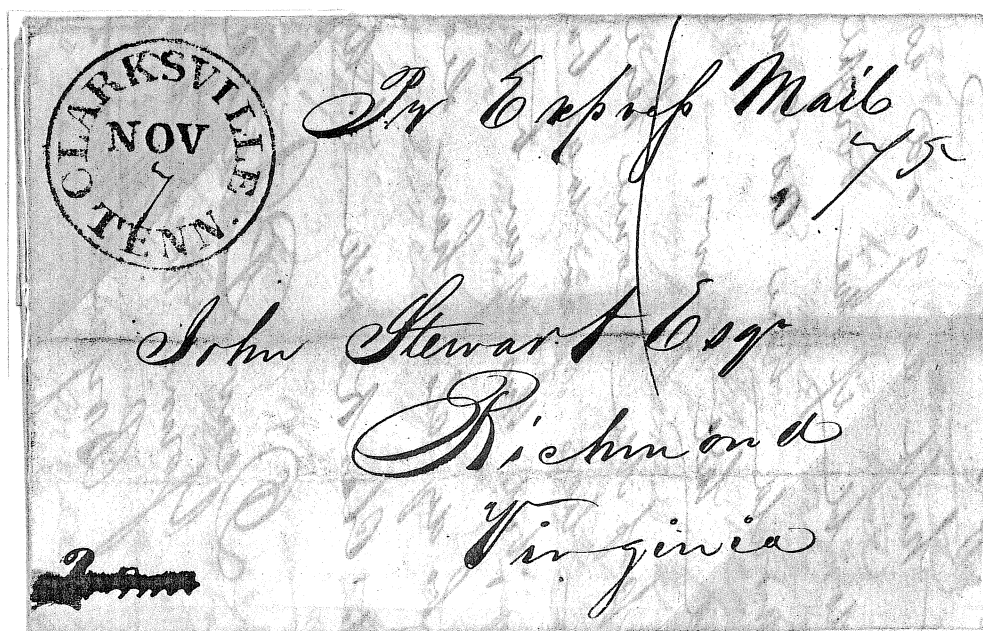 CLARKSVILLE TENN.
NOV
7
Pr Express Mail
75
John Stewart Esqr
Richmond
Virginia